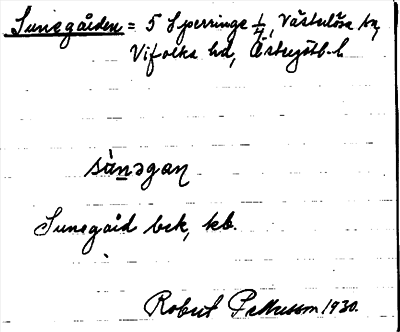 Sunegården = 5 Sperringe 1/4, Västerlösa sn,
Vifolka hd, Östergötl. l.
sùnǝgan
Sunegård bek, kb.
Robert Pettersson 1930.